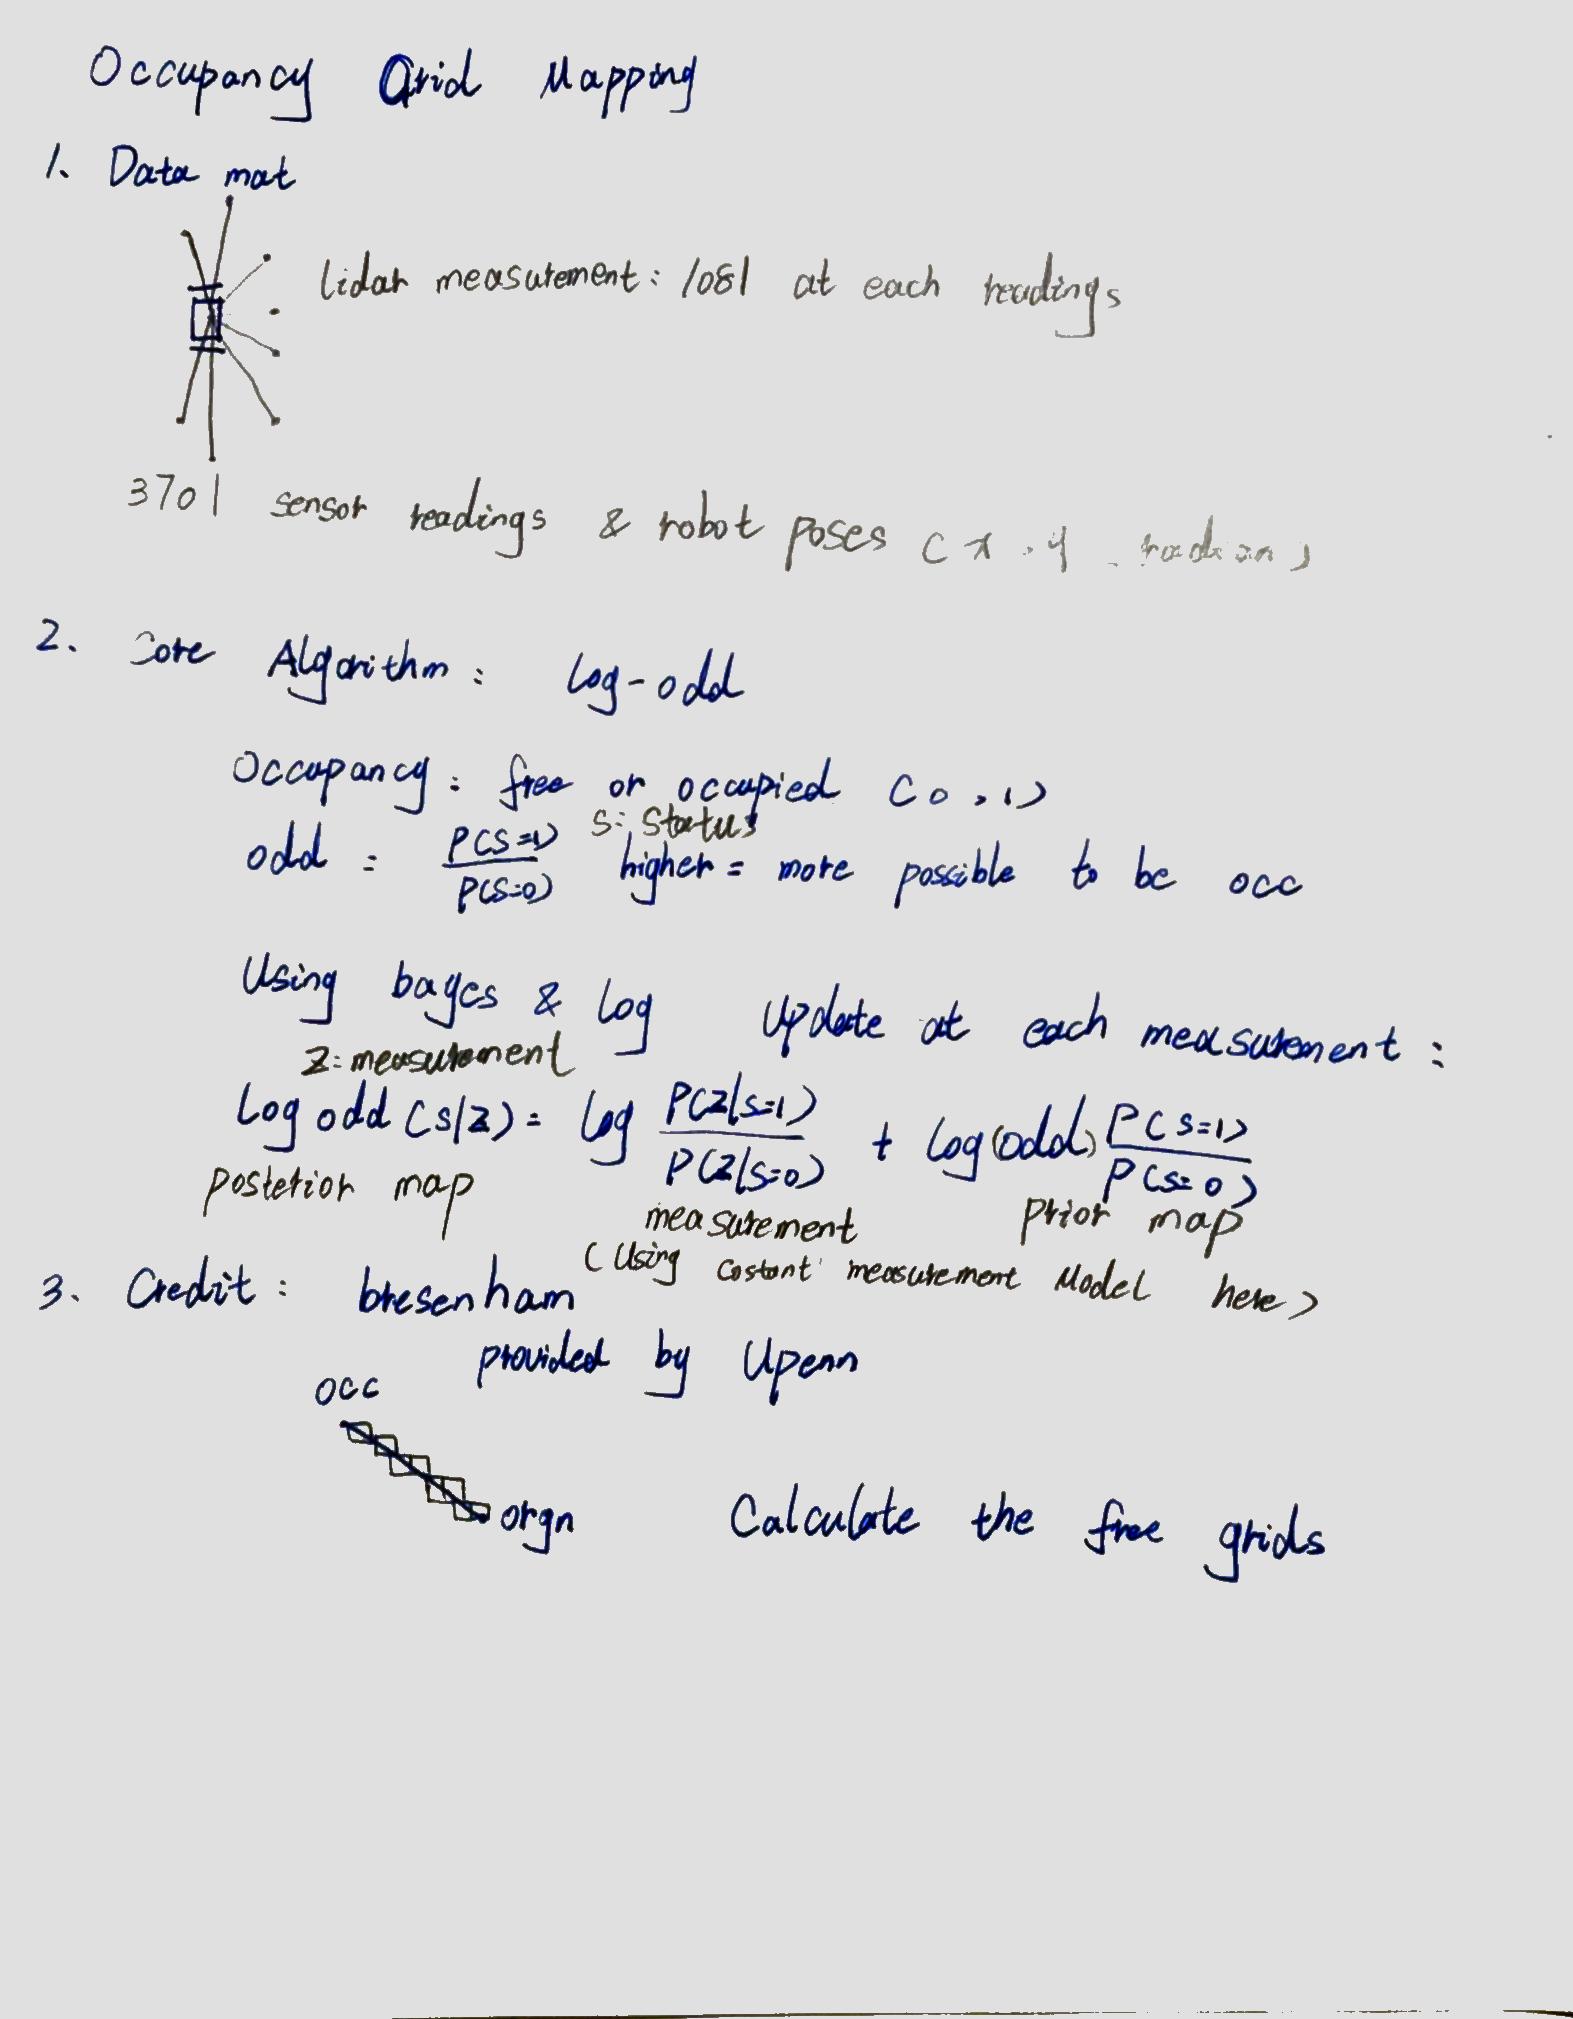 Occupancy Grid Mapping
1. Data mat
lidar measurement: 1081 at each readings
3701 sensor readings & robot poses (x, y, radian)
2. Core Algorithm: Log-odd
Occupancy: free or occupied (0, 1)
S: Status
odd: P(S=1)/P(S=0) higher = more possible to be occ
Using bayes & log Update at each measurement:
Z: measurement
Log odd (S|Z) = log P(Z|S=1)/P(Z|S=0) + log(odd) P(S=1)/P(S=0)
posterior map measurement prior map
(Using costant measurement Model here)
3. Credit: bresenham
provided by Upenn
occ
orgn Calculate the free grids